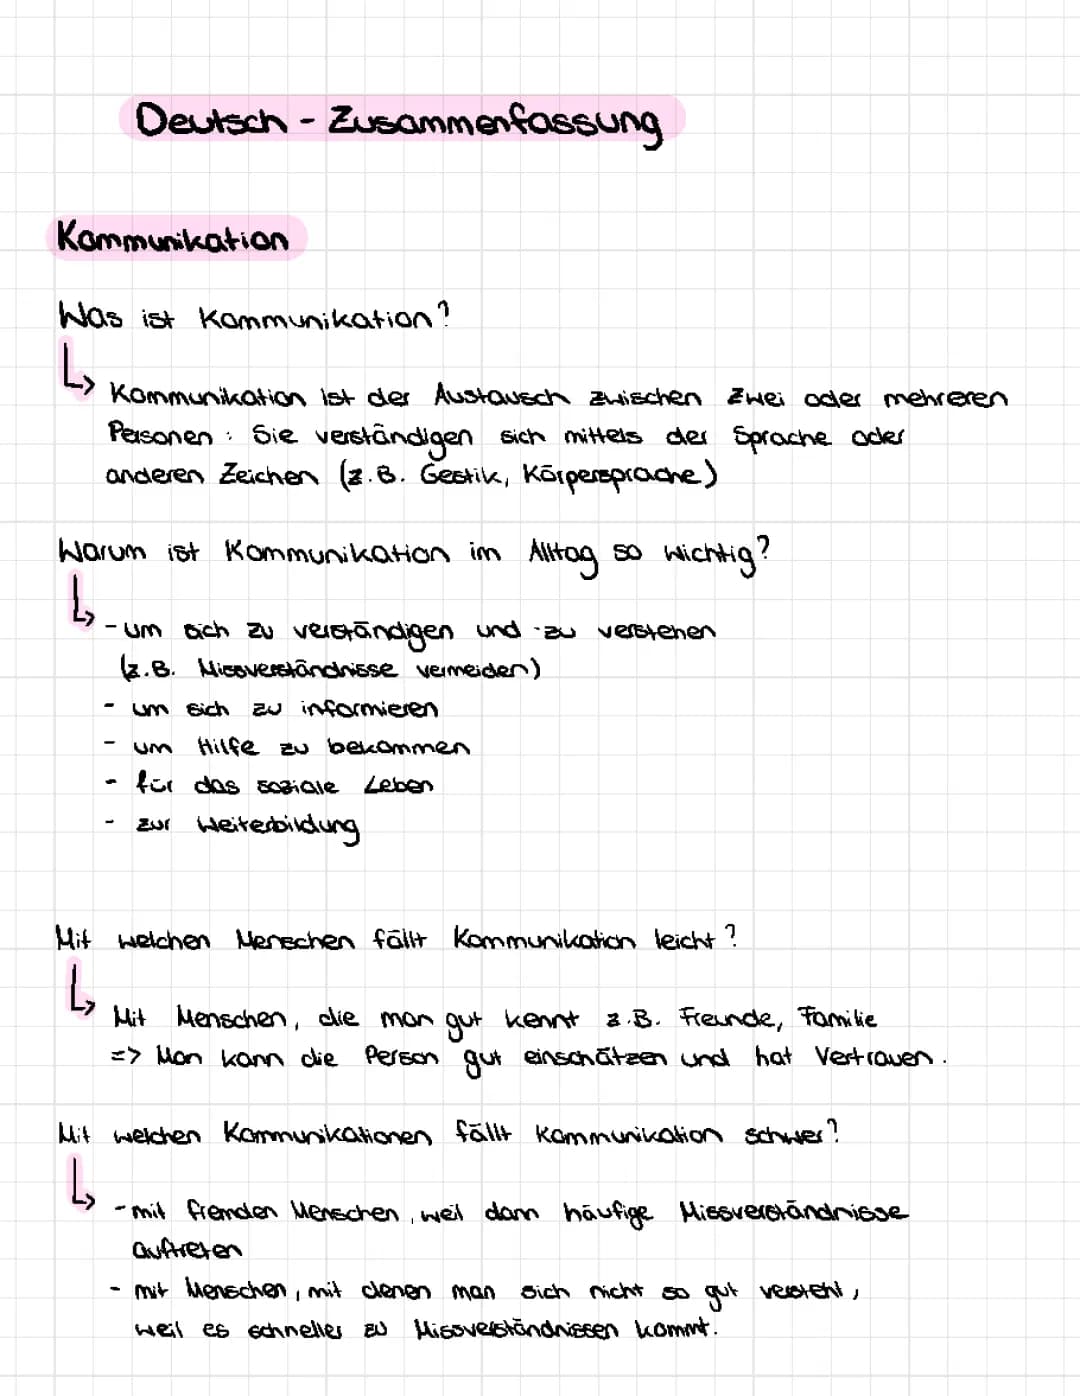 Deutsch - Zusammenfassung
Kommunikation
Was ist Kommunikation?
↳ Kommunikation ist der Austausch zwischen zwei oder mehreren
Personen: Sie verständigen sich mittels der Sprache oder
anderen Zeichen (z.B. Gestik, Körpersprache)
Warum ist Kommunikation im Alltag so wichtig?
↳ - um sich zu verständigen und zu verstehen
(z.B. Missverständnisse vermeiden)
- um sich zu informieren
- um Hilfe zu bekommen
- für das soziale Leben
- zur Weiterbildung
Mit welchen Menschen fällt Kommunikation leicht?
↳ Mit Menschen, die man gut kennt z.B. Freunde, Familie
=> Man kann die Person gut einschätzen und hat Vertrauen.
Mit welchen Kommunikationen fällt Kommunikation schwer?
↳ - mit fremden Menschen, weil dann häufige Missverständnisse
auftreten
- mit Menschen, mit denen man sich nicht so gut versteht,
weil es schneller zu Missverständnissen kommt.